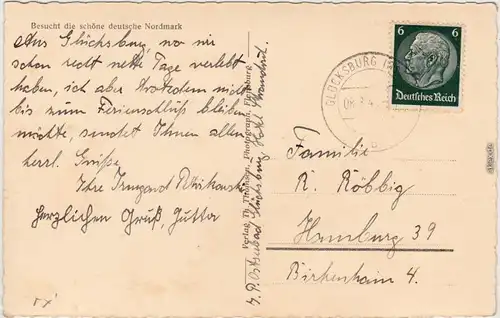 Besucht die schöne deutsche Nordmark
Aus Glücksburg, wo wir
schon recht nette Tage verlebt
haben, ich aber trotzdem nicht
bis zum Ferienschluß bleiben
möchte, sendet Ihnen allen
herzl. Grüße,
Ihre Irmgard
Herzlichen Gruß, Jutta
Verlag Th. Thomsen, Photograph, Flensburg
Ostseebad Glücksburg Hotel Strandhotel.
GLÜCKSBURG
6 6
Deutsches Reich
Familie
R. Röbbig
Hamburg 39
Birkenhain 4.